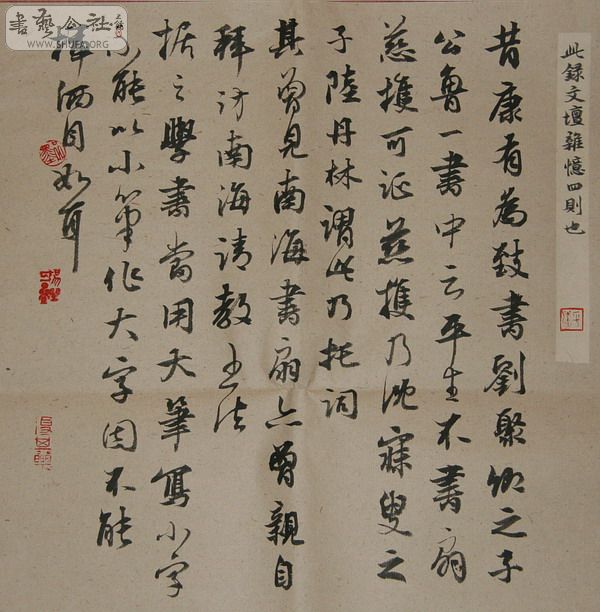 此録文壇雜憶四則也
昔康有為致書劉聚卿之子
公魯一書中云平生不書扇
慈擭可证慈擭乃沈寐叟之
子陸丹林謂此乃托詞
其曾見南海書扇亦曾親自
拜访南海請教书法
据之學書當用大筆寫小字
不能以小筆作大字因不能
揮洒自如耳
書藝公社
WWW.SHUFA.ORG